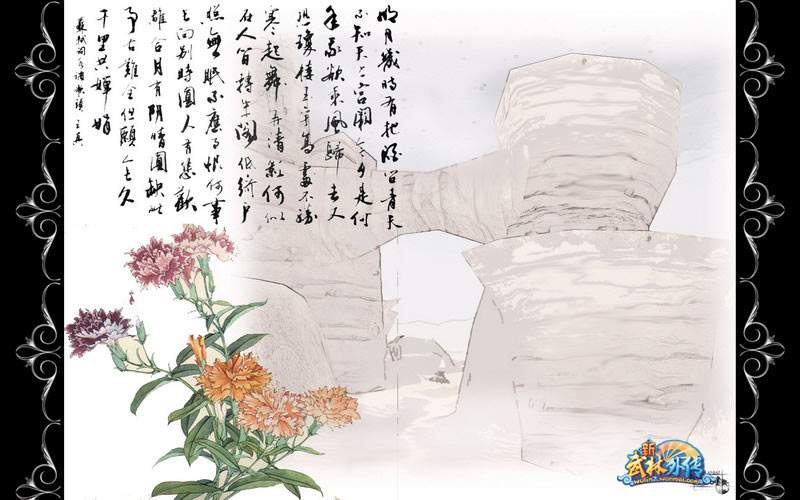 明月幾時有把酒问青天
不知天上宫阙今夕是何
年我欲乘風歸去又
恐瓊樓玉宇高處不勝
寒起舞弄清影何似
在人间轉朱阁低绮户
照無眠不應有恨何事
长向别時圆人有悲歡
離合月有阴晴圆缺此
事古難全但願人长久
千里共嬋娟
蘇軾詞水調歌頭
新
武林外传